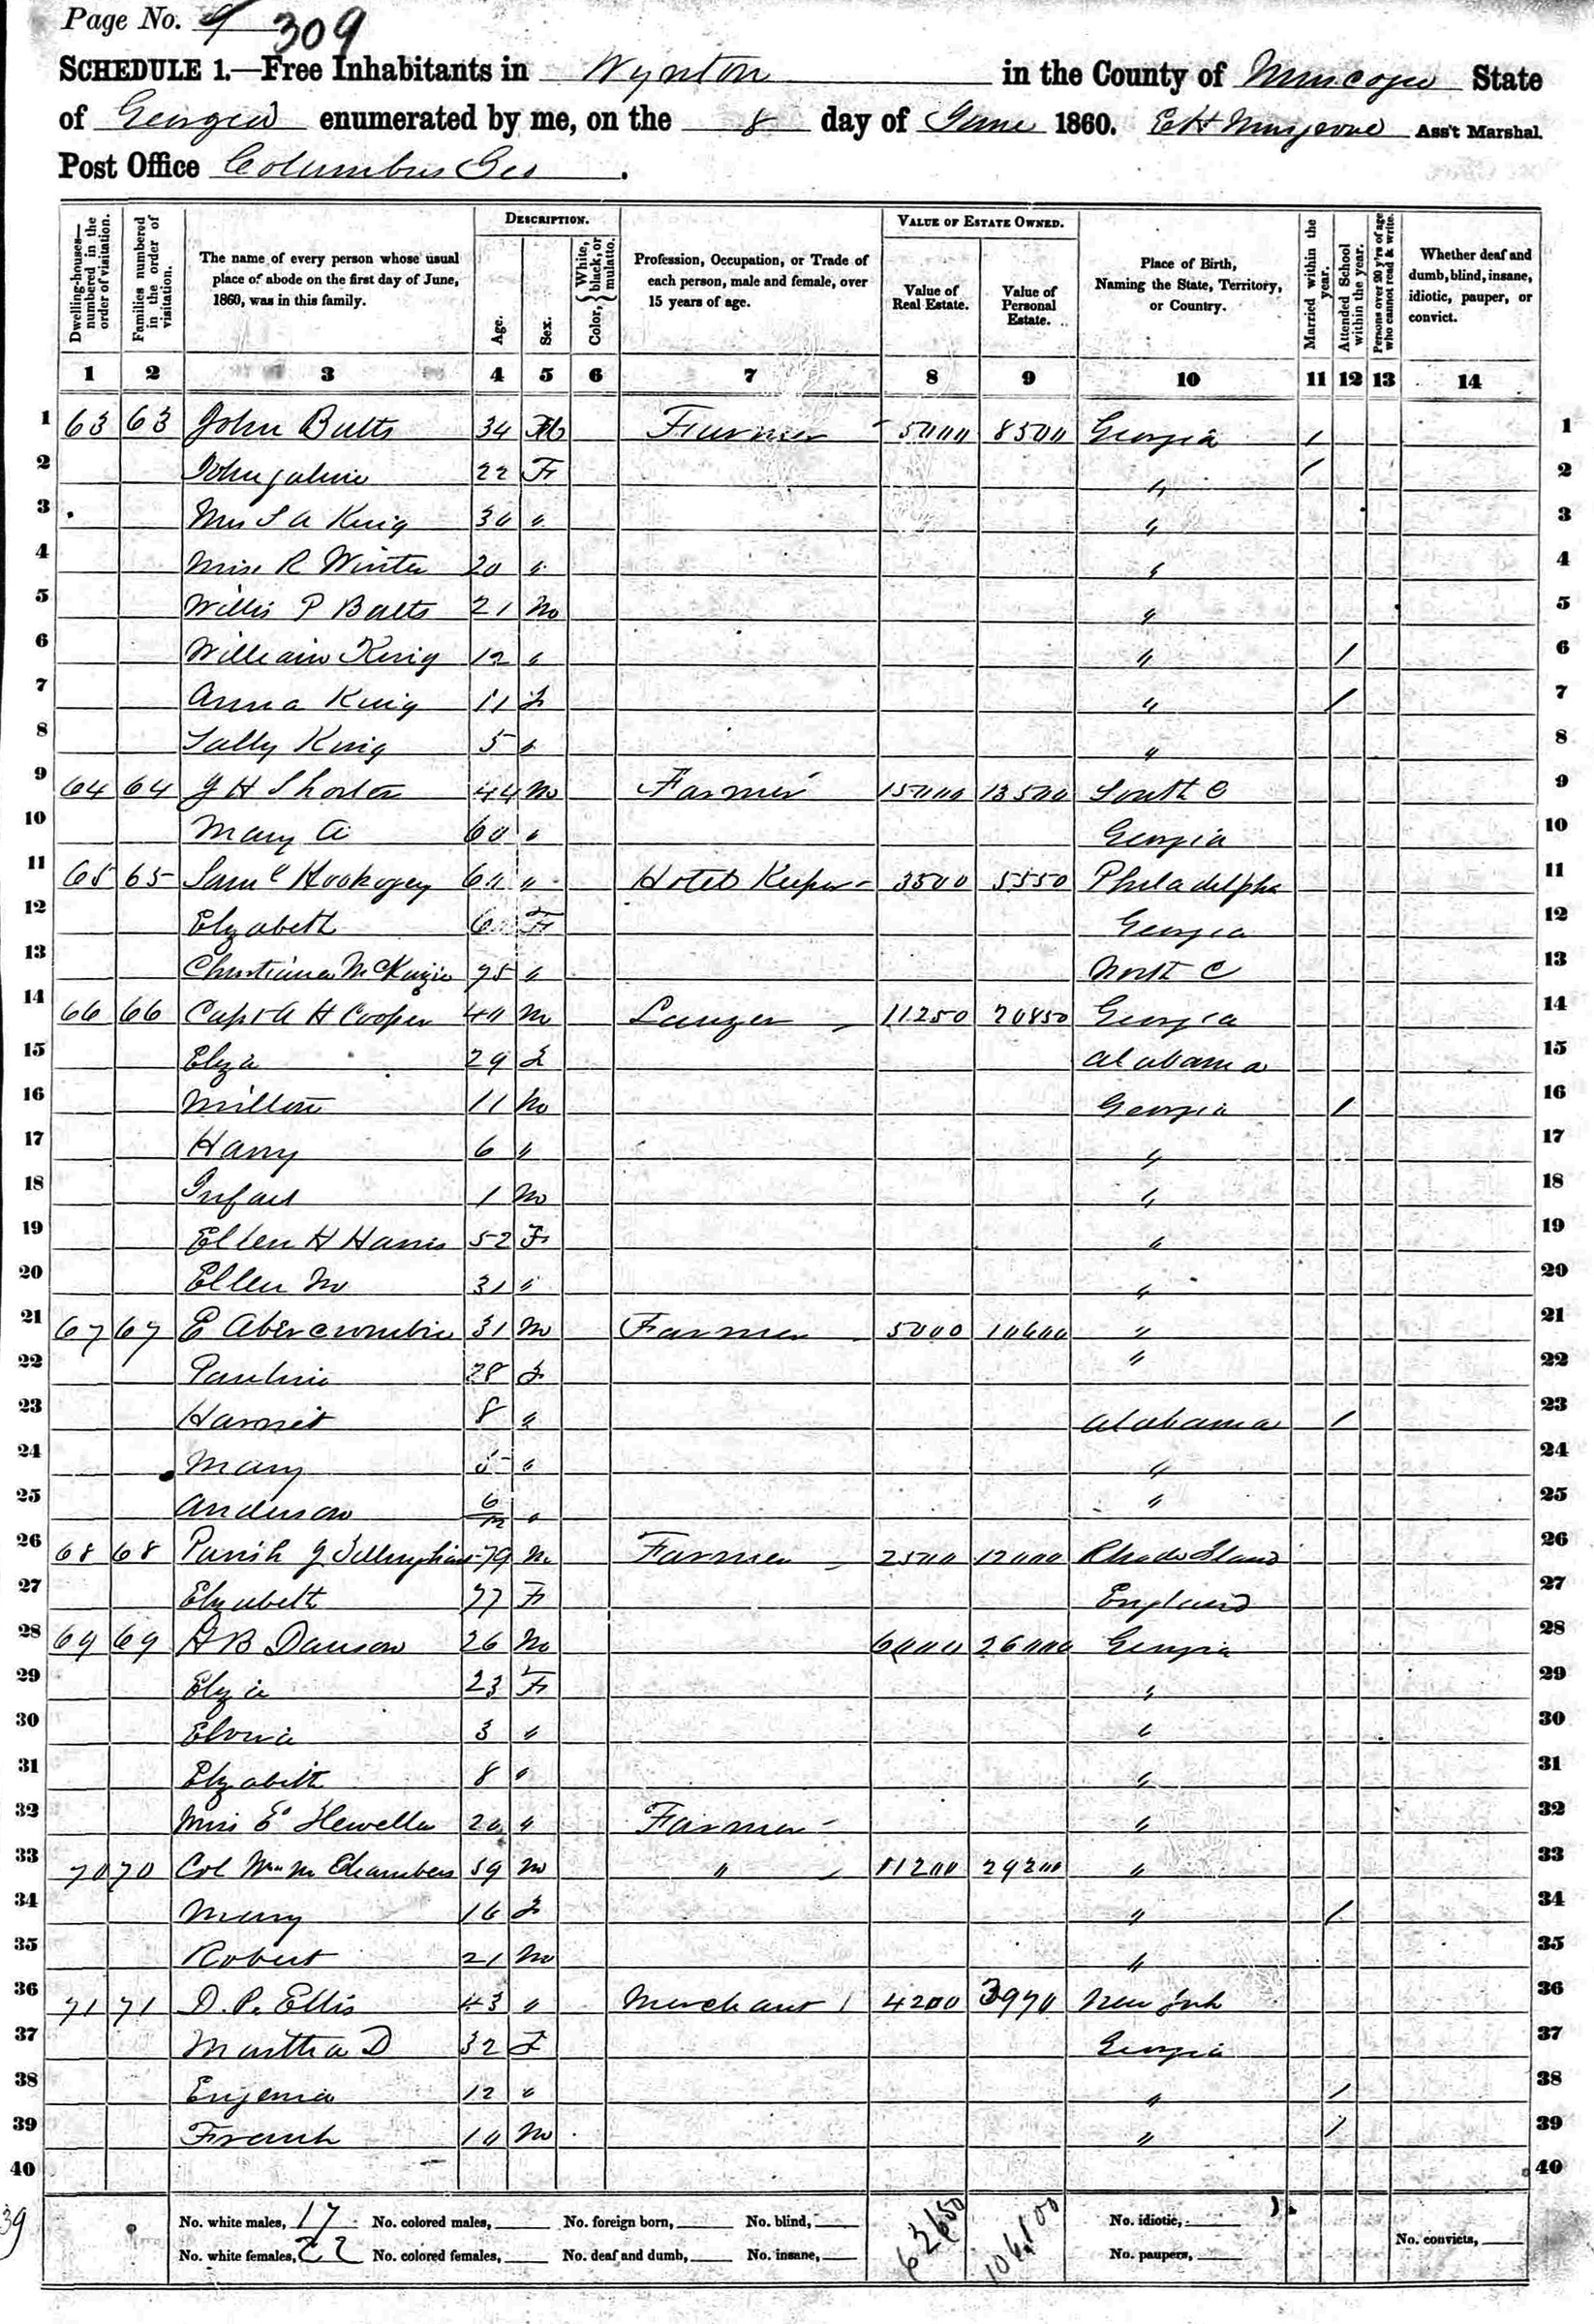 Page No. 9 309
SCHEDULE 1.—Free Inhabitants in Wynton in the County of Muscogee State
of Georgia enumerated by me, on the 8 day of June 1860. E H Musgrove Ass't Marshal.
Post Office Columbus Geo.
Dwelling-houses—numbered in the order of visitation.
Families numbered in the order of visitation.
The name of every person whose usual place of abode on the first day of June, 1860, was in this family.
DESCRIPTION.
Age.
Sex.
Color, { White, black, or mulatto.
Profession, Occupation, or Trade of each person, male and female, over 15 years of age.
VALUE OF ESTATE OWNED.
Value of Real Estate.
Value of Personal Estate.
Place of Birth, Naming the State, Territory, or Country.
Married within the year.
Attended School within the year.
Persons over 20 y'rs of age who cannot read & write.
Whether deaf and dumb, blind, insane, idiotic, pauper, or convict.
1 2 3 4 5 6 7 8 9 10 11 12 13 14
1 63 63 John Butts 34 M Farmer 5000 8500 Georgia / 1
2 22 F " / 2
3 Mrs S A King 30 " " 3
4 Miss R Winter 20 " " 4
5 Willis P Butts 21 M " 5
6 William King 12 " " / 6
7 Anna King 11 F " / 7
8 Sally King 5 " " 8
9 64 64 J H Shorter 44 M Farmer 15000 13500 South C 9
10 Mary A 60 " Georgia 10
11 65 65 Saml Hookogey 60 " Hotel Keeper 3500 5550 Philadelpha 11
12 Elzabeth F Georgia 12
13 Christiana McKinzie 75 " North C 13
14 66 66 Capt A H Cooper 40 M 11250 20850 Georgia 14
15 Elza 29 F Alabama 15
16 Milton 11 M Georgia / 16
17 Harry 6 " " 17
18 Infant 1 M " 18
19 Ellen H Harris 52 F " 19
20 Ellen M 31 " " 20
21 67 67 E Abercrombie 31 M Farmer 5000 10600 " 21
22 Pauline 28 F " 22
23 Harriet 8 " Alabama / 23
24 Mary 5 " " 24
25 Anderson 6/12 " " 25
26 68 68 79 M Farmer 2500 12000 Rhode Island 26
27 Elzabeth 77 F England 27
28 69 69 H B Dawson 26 M 6000 26000 Georgia 28
29 Elza 23 F " 29
30 3 " " 30
31 Elzabeth 8 " " 31
32 Miss E 20 " Farmer " 32
33 70 70 Col Wm M Chambers 59 M " 11200 29200 " 33
34 Mary 16 F " / 34
35 Robert 21 M " 35
36 71 71 D. P. Ellis 43 " Merchant 4200 3970 New York 36
37 Martha D 32 F Georgia 37
38 Eugenia 12 " " / 38
39 Frank 10 M " / 39
40 40
39
No. white males, 17 No. colored males, No. foreign born, No. blind, 63650 106,100 No. idiotic,
No. white females, 22 No. colored females, No. deaf and dumb, No. insane, No. paupers, No. convicts,